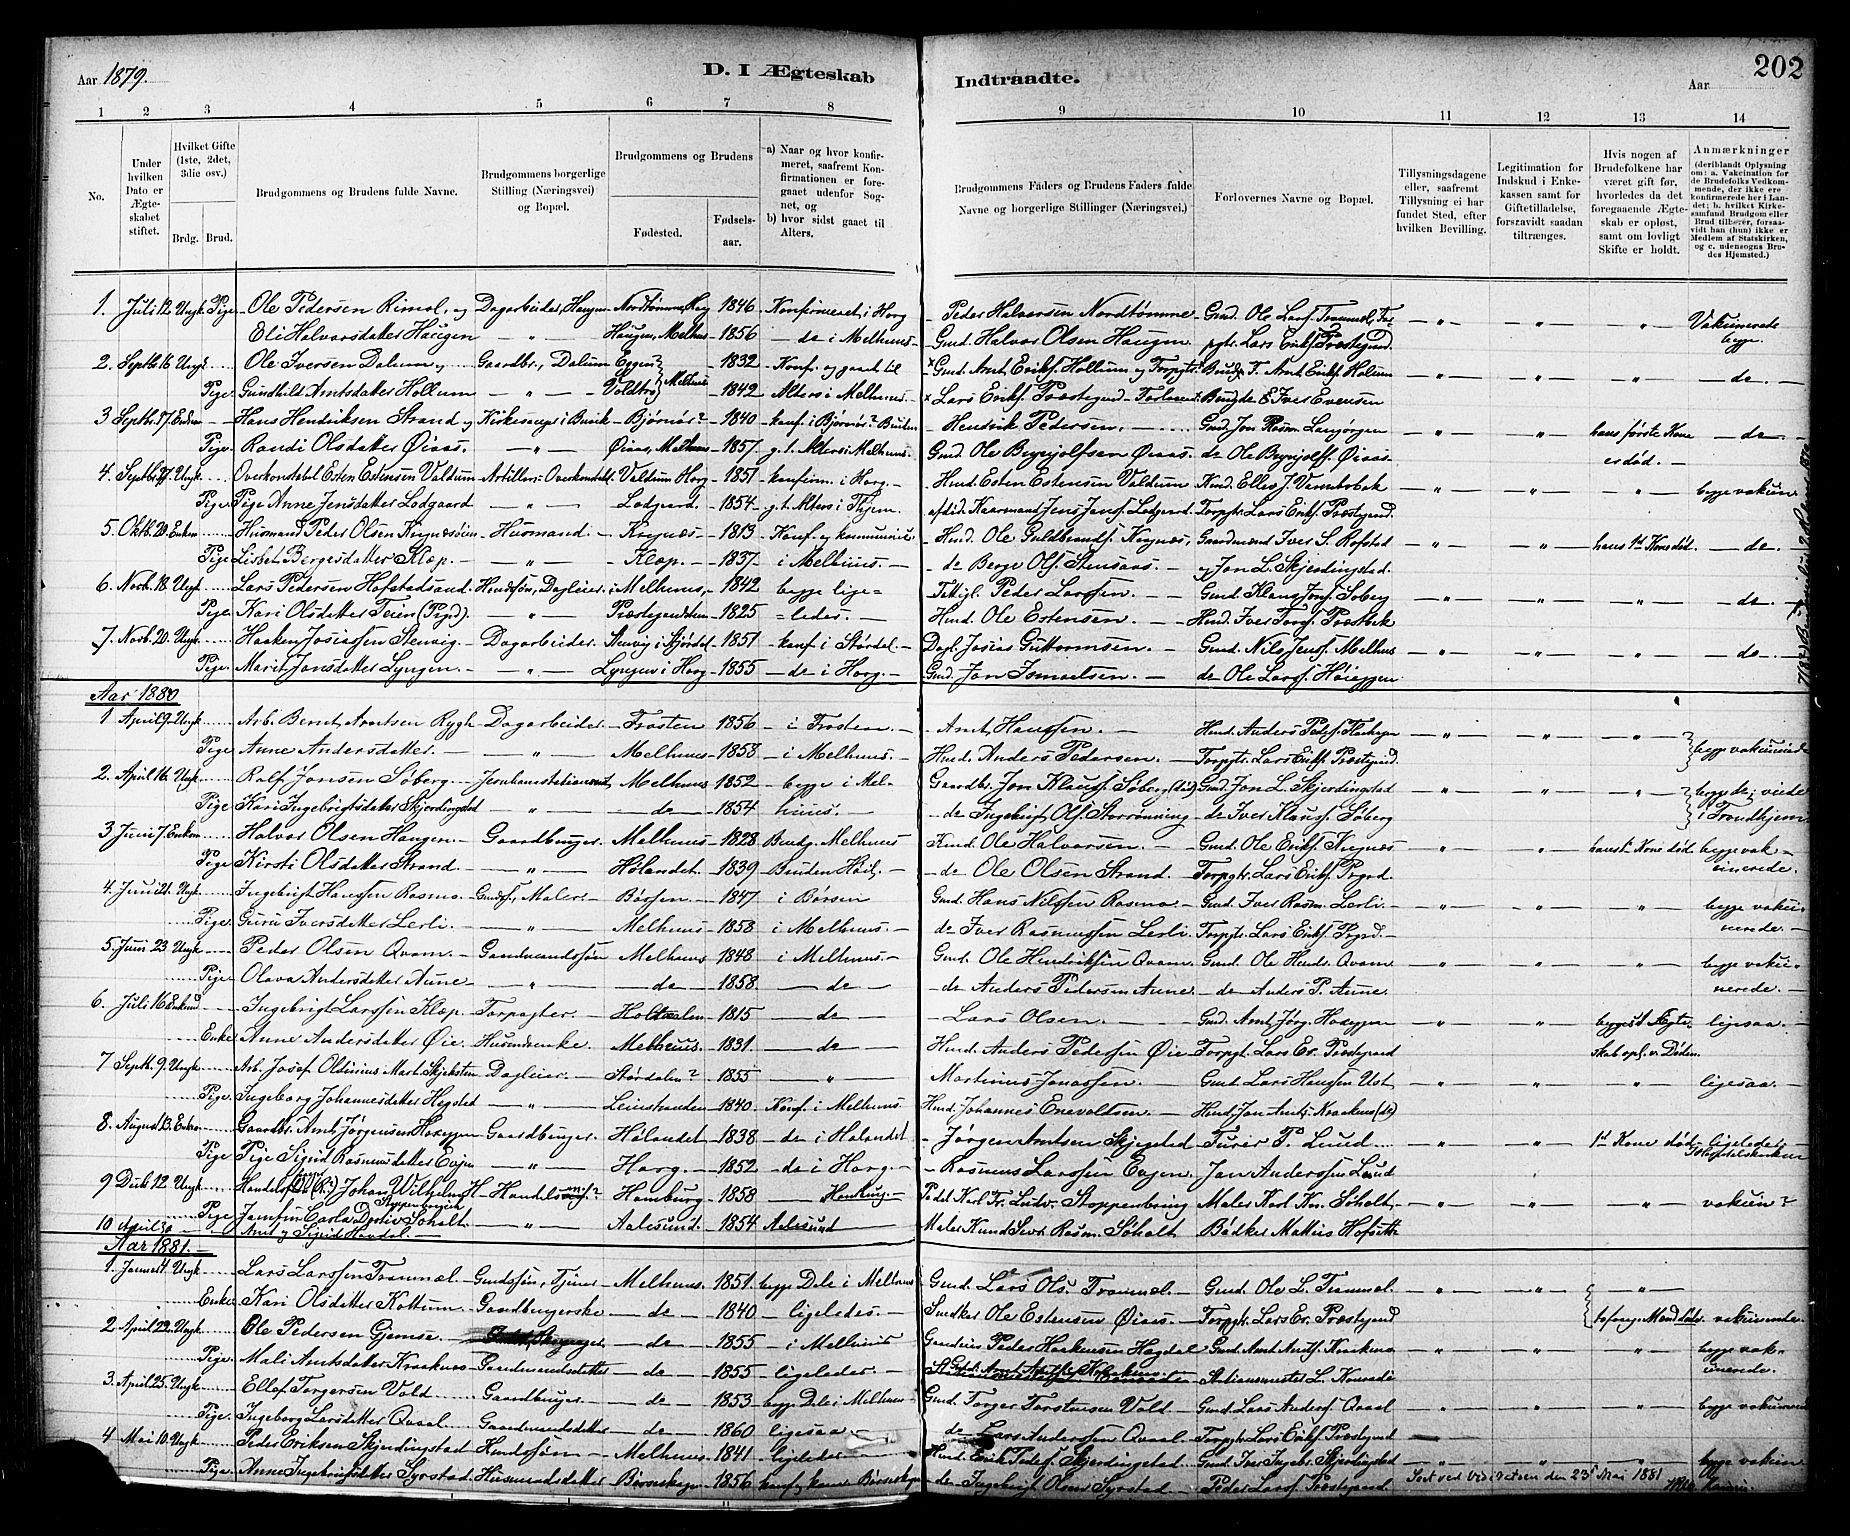 Aar 1879.
D. I Ægteskab
Indtraadte.
Aar
202
1 2 3 4 5 6 7 8 9 10 11 12 13 14
No.
Under hvilken Dato er Ægteskabet stiftet.
Hvilket Gifte (1ste, 2det, 3die osv.)
Brdg. Brud.
Brudgommens og Brudens fulde Navne.
Brudgommens borgerlige Stilling (Næringsvei) og Bopæl.
Brudgommens og Brudens
Fødested.
Fødselsaar.
a) Naar og hvor konfirmeret, saafremt Konfirmationen er foregaaet udenfor Sognet, og b) hvor sidst gaaet til Alters.
Brudgommens Faders og Brudens Faders fulde Navne og borgerlige Stillinger (Næringsvei.)
Forlovernes Navne og Bopæl.
Tillysningsdagene eller, saafremt Tillysning ei har fundet Sted, efter hvilken Bevilling.
Legitimation for Indskud i Enkekassen samt for Giftetilladelse, forsaavidt saadan tiltrænges.
Hvis nogen af Brudefolkene har været gift før, hvorledes da det foregaaende Ægteskab er opløst, samt om lovligt Skifte er holdt.
Anmærkninger (deriblandt Oplysning om: a. Vakcination for de Brudefolks Vedkommende, der ikke ere konfirmerede her i Landet; b. hvilket Kirkesamfund Brudgom eller Brud tilhører, forsaavidt han (hun) ikke er Medlem af Statskirken, og c. udensogns Brudes Hjemsted.)
1. Juli 12. Ungk. Pige Ole Pedersen Rimol, og Dagarbeider, Haugen Nordtømme, Horg 1846 Konfirmeret i Horg Peder Halvorsen Nordtømme Gmd. Ole Lars. Trammel, Tor-
Eli Halvorsdatter Haugen " Haugen, Melhus 1856 de i Melhus Gmd. Halvor Olsen Haugen pgtr. Lars Eriks. Præstegrd. " " " Vakcinerede begge
2. Septbr. 16 Ungk. Ole Iversen Dalum, Gaardbr., Dalum Eggen 1832 Konf. og gaaet til Gmd. Arnt Eriks. Hollum og Torpgtr.
Pige Gunhild Arntsdatter Hollum " Melhus 1842 Alters i Melhus Lars Eriks. Præstegrd. " " " de.
3 Septbr. 17. Enkem. Hans Hendriksen Strand og Kirkesanger i Buvik Bjørnør? 1840 konf. i Bjørnør? Bruden Hendrik Pedersen. Gmd. Jon Rasm. Langørgen
Pige Randi Olsdatter Øiaas " Øiaas, Melhus 1857. g. t. Alters i Melhus. Gmd. Ole Brynjolfsen Øiaas de Ole Brynjolfs. Øiaas " " hans første Kone er død. de
4. Septbr. 27. Ungk. Overkonstabel Esten Estensen Valdum Artilleri-Overkonstabel Valdum Horg 1851 konfirm. i Horg. Hmd. Esten Estensen Valdum
Pige Pige Anne Jensdatter Lodgaard " Lodgaard. 1854 g. t. Alters i Torpgtr. Lars Eriks. Præstegrd. " " " begge vakcin.
5. Oktb. 20. Enkem. Husmand Peder Olsen Krognæsøien Husmand. Krognæs 1813 Konf. og kommunic. Hmd. Ole Guldbrands. Krognæs, Gaardmænd Iver S. Rofstad
Pige Lisbet Bergesdatter Klæp. " Klæp. 1837. i Melhus. de Berge Ols. Stensaas. og Jon L. Skjerdingstad. " " hans 1st Kone død. de
6. Novb. 18 Ungk. Lars Pedersen Hofstadsand. Dagleier i Melhus, 1842 begge lige- Peder Larssen. Gmd. Klaus Jons. Søberg
Pige Kari Olsdatter Teien (Prgd.) Præstegaarden 1825 ledes. Hmd. Ole Estensen. " " " de
7. Novb. 20. Ungk. Haaken Josiassen Stenvig. Dagarbeider. Stenvig i Stjørdal 1851 konf. i Størdal. Dagl. Josias Guttormsen. Gmd. Nils Jens. Melhus
Pige. Marit Jonsdatter Lyngen. " Lyngen i Horg 1855 de i Horg. Gmd. Jon Ismaelsen. de Ole Lars. Høieggen " " " de
Aar 1880
1 April 9. Ungk. Arb. Bernt Arntsen Rygh Dagarbeider. Frosten 1856 i Frosten. Arnt Hanssen. Hmd. Anders Peders. Flaahagen
Pige Anne Andersdatter. " Melhus 1858. i Melhus. Hmd. Anders Pedersen. Torpgtr. Lars Eriks. Præstegrd. " " " begge vakcinerede
2. April 16. Ungk. Rolf Jonsen Søberg Melhus 1852 begge i Mel- Gaardbr. Jon Klaus. Søberg (død) Gmd. Jon L. Skjerdingstad
Pige Kari Ingebrigtsdatter Skjerdingstad " de 1854 huus. de Ingebrigt Ols. Storrønning de Iver Klaus. Søberg " " " begge do; viede i Trondhjem
3. Juni 7. Enkem. Halvor Olsen Haugen. Gaardbruger. Melhus 1828 Brudg. Melhus Kmd. Ole Halvorsen. Gmd. Ole Eriks. Krognæs
Pige Kirsti Olsdatter Strand. " Hølandet 1839 Bruden Høl. de Ole Olsen Strand. Torpgtr. Lars Eriks. Prgrd. " " hans 1st Kone død begge vakcinerede.
4. Juni 21. Ungk. Ingebrigt Hanssen Rasmo. Gmdsf., Maler. Børsen 1847 i Børsen Gmd. Hans Nilssen Rasmo Gmd. Iver Rasm. Lerli
Pige. Guru Iversdatter Lerli. " Melhus 1858 i Melhus. de Iver Rasmussen Lerli Torpgtr. Lars Eriks. Prgrd. " " " begge vakcinerede.
5. Juni 23 Ungk. Peder Olsen Qvam. Gaardmandssøn Melhus 1848 i Melhus. Gmd. Ole Hendriksen Qvam Gmd. Ole Hendr. Qvam
Pige Olava Andersdatter Aune " de 1858. de de Anders Pedersen Aune. de Anders P. Aune. " " " begge vakcinerede.
6. Juli 16 Enkemd. Ingebrigt Larssen Klæp. Torpagter. Holtaalen 1815 de Lars Olsen. Gmd. Arnt Jørg. Hoseggen
Enke Anne Andersdatter Øie. Husmdsenke. Melhuus. 1831. de Hmd. Anders Pedersen Øie Torpgtr. Lars Er. Præstegaard " " begges 1 Ægteskab opl. v. Døden. ligesaa.
7 Septb. 9. Ungk. Arb. Josef Oldinius Mart. Skjelsten Dagleier. Størdalen? 1855 " Martinus Jonassen. Gmd. Lars Hanssen Ust
Pige. Ingeborg Johannesdatter Hegstad " Leinstranden 1840 Konf. i Melhus Hmd. Johannes Enevoldsen. " " " ligesaa.
8. August 13. Enkem. Gaardbr. Arnt Jørgensen Hoseggen Gaardbruger. Hølandet 1838 de i Hølandet Jørgen Arntsen Skjegstad Turer P. Lund
Pige Pige Sigrid Rasmusdatter Evjen " Horg. 1852 de i Horg. Rasmus Larssen Evjen Jon Anderssen Lund " " 1st Kone død. ligeledes.
9 Decb. 12. Ungk. Johan Wilhelm H. Stoppenbrinck Handelsmd.? Hamburg 1858 Hamburg. Karl Fr. Ludv. Stoppenbrinck Maler Karl Kn. Søholt " " " vakcin?
Pige Josefine Carla Dorthea Søholt " Aalesund. 1854. Aalesund Maler Knud Sevr. Rasm. Søholt Bødker Mathias Hofseth
10 April 30 Arnt og Sigrid Havdal.
Aar 1881.
1. Januar 4. Ungk. Lars Larssen Trammæl. Gmdssøn, Tjener Melhuus. 1851. begge Dele i Melhus Gmd. Lars Ols. Trammæl. Gmd. Ole L. Trammel.
Enke Kari Olsdatter Kattum Gaardbrugerske de 1840 ligeledes. Smeker Ole Estensen Øiaas. Torpgtr. Lars Er. Præstegrd " " Mand død. vakcinerede
2 April 22. Ungk. Ole Pedersen Gjemse. de 1855 i Melhuus Peder Haakensen Hagdal Gmd. Arnt Arnts. Kraakmo
Pige. Mali Arntsdatter Kraakmo Gaardmandsdatter de 1855 ligeledes. L. Konradi " " " begge vakcinerede.
3. April 25. Ungk. Ellef Torgersen Vold Gaardbruger de 1853 begge Dele i Melhus Gmd. Torger Torstensen Vold Gmd. Lars Anders. Qvaal
Pige. Ingeborg Larsdatter Qvaal Gaardmandsdatter de 1860 ligesaa de Lars Anderssen Qvaal Torpgtr. Lars Eriks. Præstegrd. " " " begge vakcinered
4 Mai 10. Ungk. Peder Eriksen Skjerdingstad Hmdssøn Melhuus 1841 ligeledes Hmd. Erik Peders. Skjerdingstad Gmd. Iver Ingebr. Skjerdingstad
Pige. Anne Ingebrigtsdatter Syrstad Husmandsdatter Børseskogn 1856 konf. Børseskogn de Ingebrigt Olsen Syrstad Peder Lars. Præstegrd. " " " begge vakcin
Seet ved Visitatsen den 23 Mai 1881